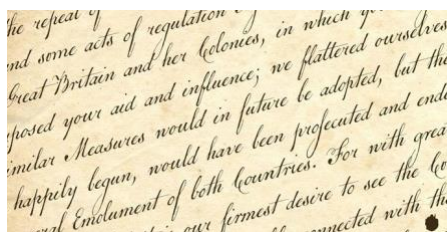 the repeal of
and some acts of regulation
Great Britain and her Colonies, in which
posed your aid and influence; we flattered ourselves
imilar Measures would in future be adopted, but the
happily begun, would have been prosecuted and
eral Emolument of both Countries. For with grea
our firmest desire to see the
connected with th